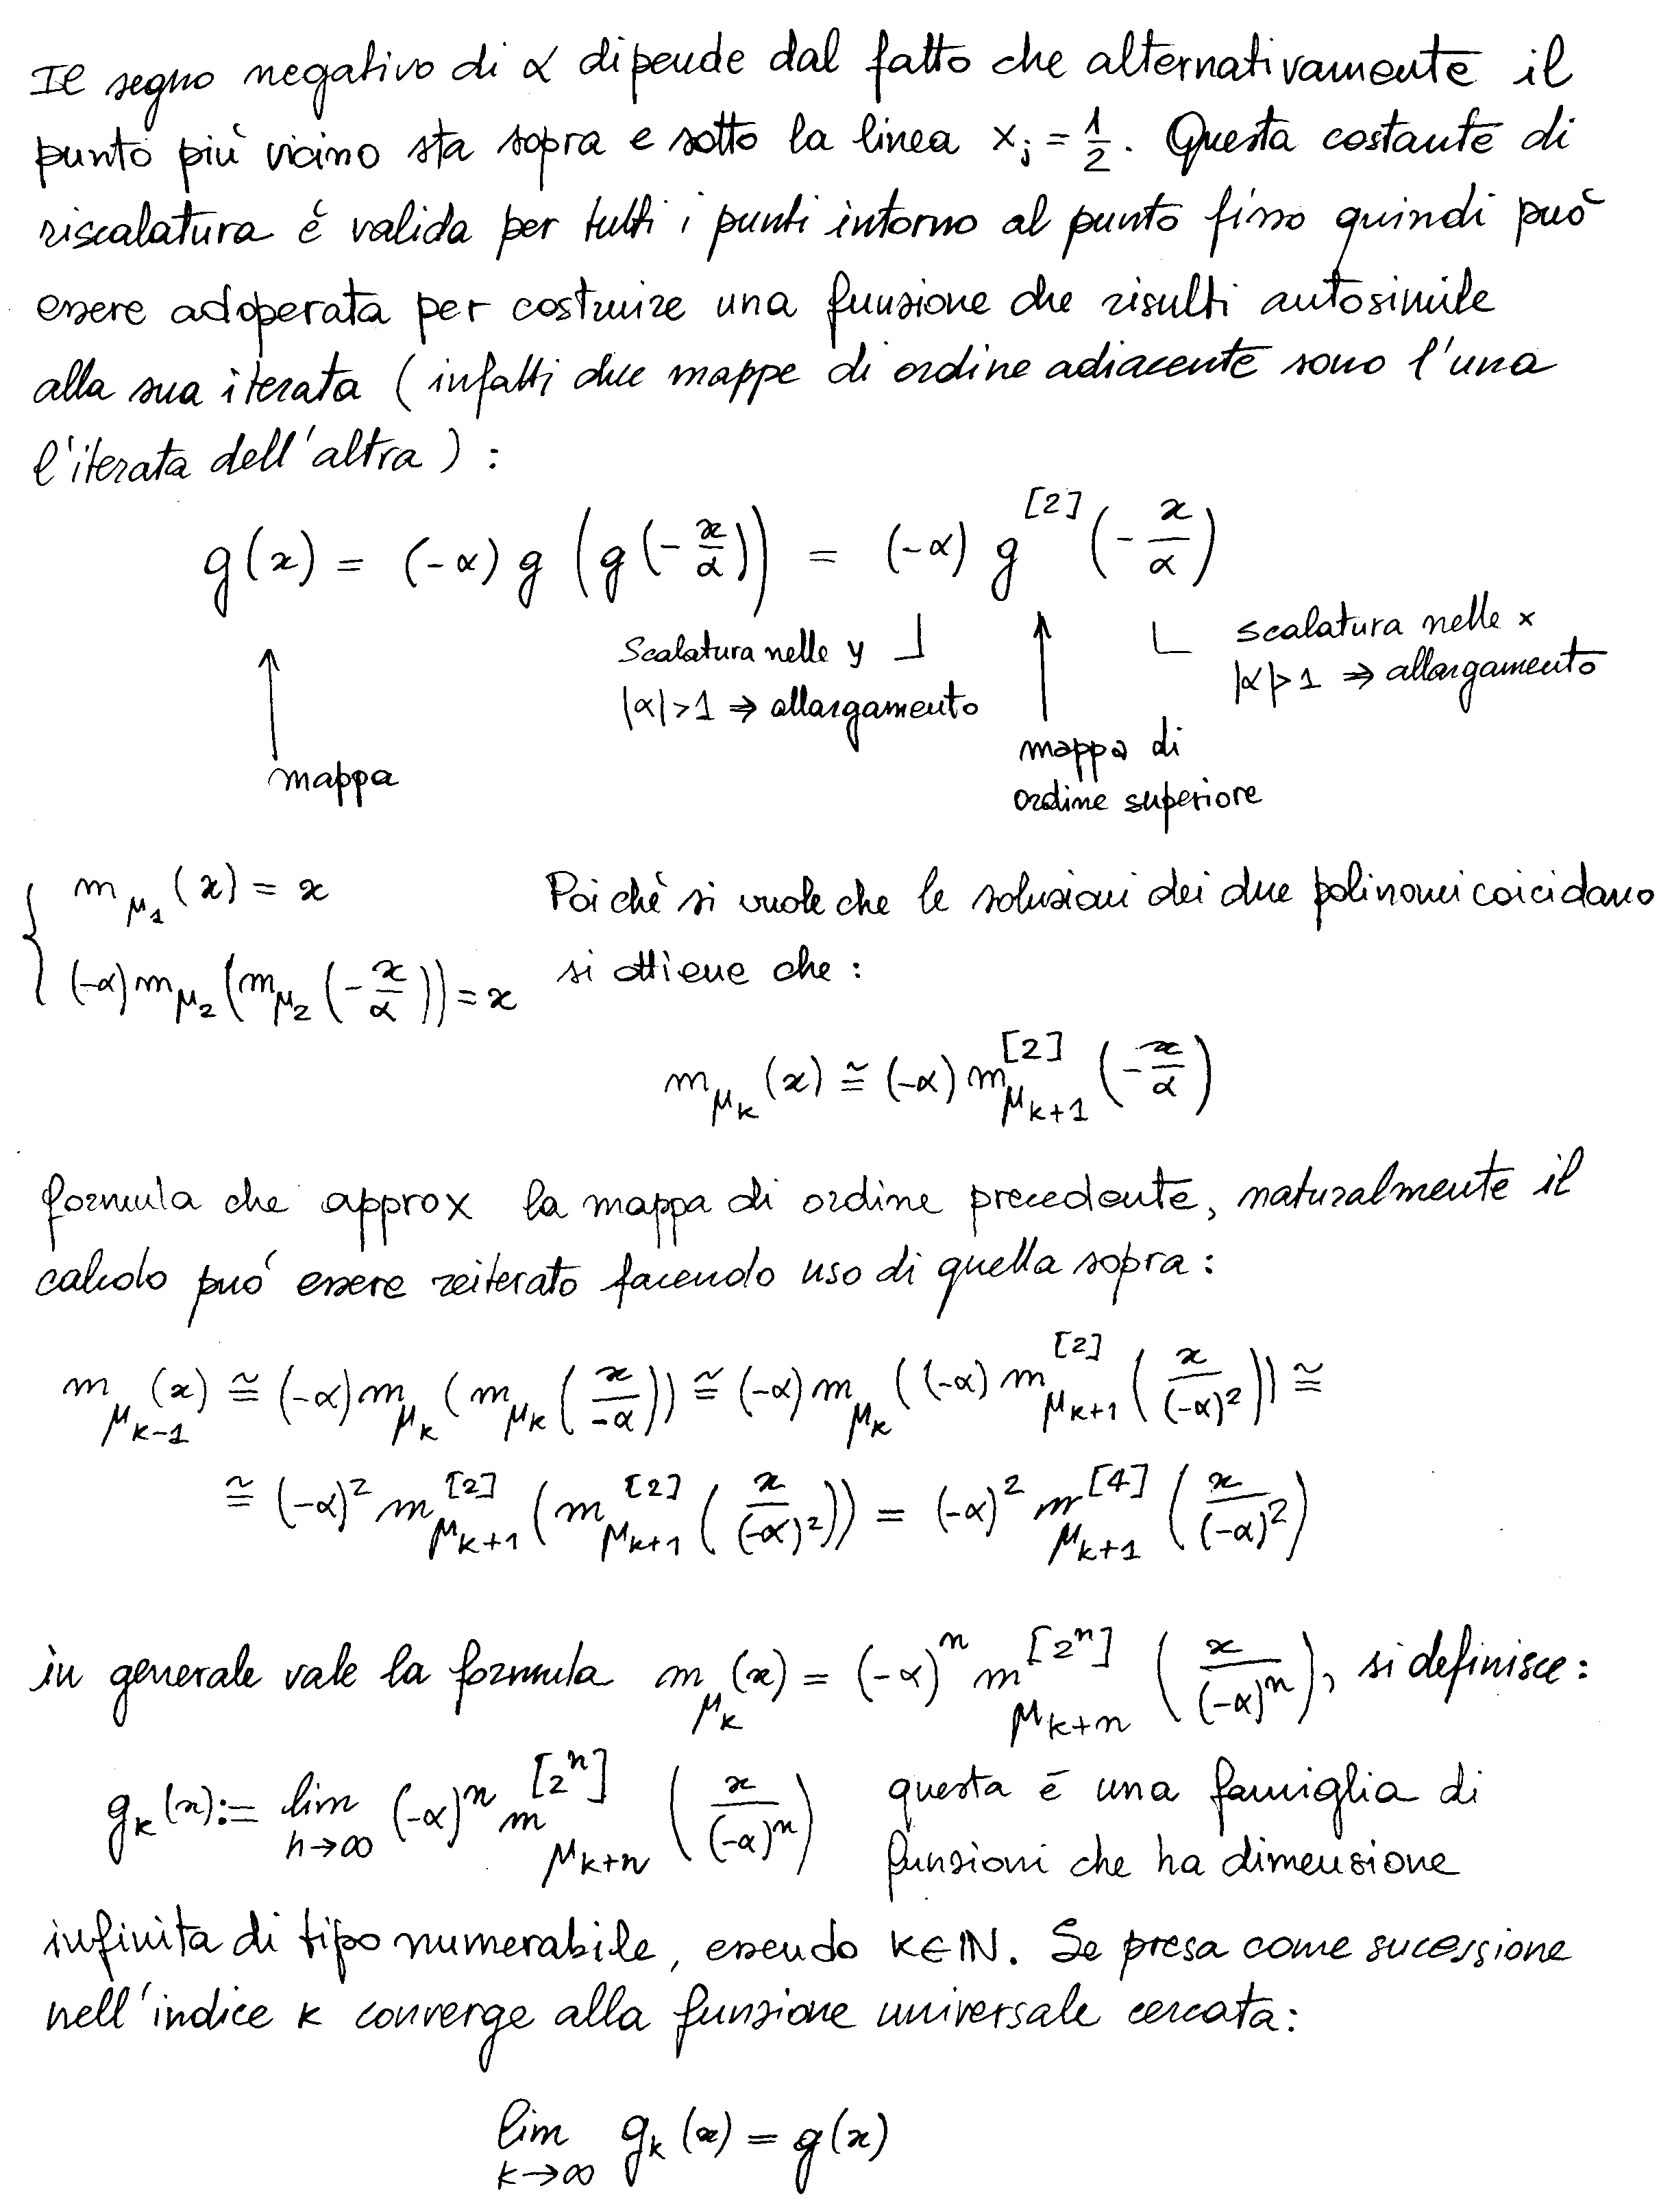 Il segno negativo di α dipende dal fatto che alternativamente il
punto più vicino sta sopra e sotto la linea x_j = 1/2. Questa costante di
riscalatura é valida per tutti i punti intorno al punto fisso quindi può
essere adoperata per costruire una funzione che risulti autosimile
alla sua iterata (infatti due mappe di ordine adiacente sono l'una
l'iterata dell'altra):
g(x) = (-α) g (g(-x/α)) = (-α) g^[2] (-x/α)
Scalatura nelle y
|α|>1 ⇒ allargamento
scalatura nelle x
|α|>1 ⇒ allargamento
mappa
mappa di
ordine superiore
{ m_μ1 (x) = x
(-α) m_μ2 (m_μ2 (-x/α)) = x
Poichè si vuole che le soluzioni dei due polinomi coicidano
si ottiene che:
m_μk (x) ≅ (-α) m^[2]_μk+1 (-x/α)
formula che approx la mappa di ordine precedente, naturalmente il
calcolo puó essere reiterato facendo uso di quella sopra:
m_μk-1 (x) ≅ (-α) m_μk (m_μk (x/-α)) ≅ (-α) m_μk ((-α) m^[2]_μk+1 (x/(-α)^2)) ≅
≅ (-α)^2 m^[2]_μk+1 (m^[2]_μk+1 (x/(-α)^2)) = (-α)^2 m^[4]_μk+1 (x/(-α)^2)
in generale vale la formula m_μk (x) = (-α)^n m^[2^n]_μk+n (x/(-α)^n), si definisce:
g_k(x) := lim n→∞ (-α)^n m^[2^n]_μk+n (x/(-α)^n) questa è una famiglia di
funzioni che ha dimensione
infinita di tipo numerabile, essendo k∈ℕ. Se presa come sucessione
nell'indice k converge alla funzione universale cercata:
lim k→∞ g_k (x) = g(x)